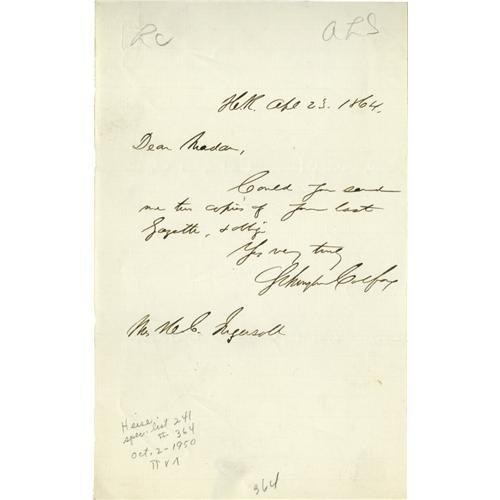 Rc ALS
H.R. Apl 23. 1864.
Dear Madam,
Could you send
me two copies of your last
Gazette, & oblige
Yrs very truly
Schuyler Colfax
Mrs H. C. Ingersoll
Heise.
spec. list 241
# 364
Oct. 2-1950
364